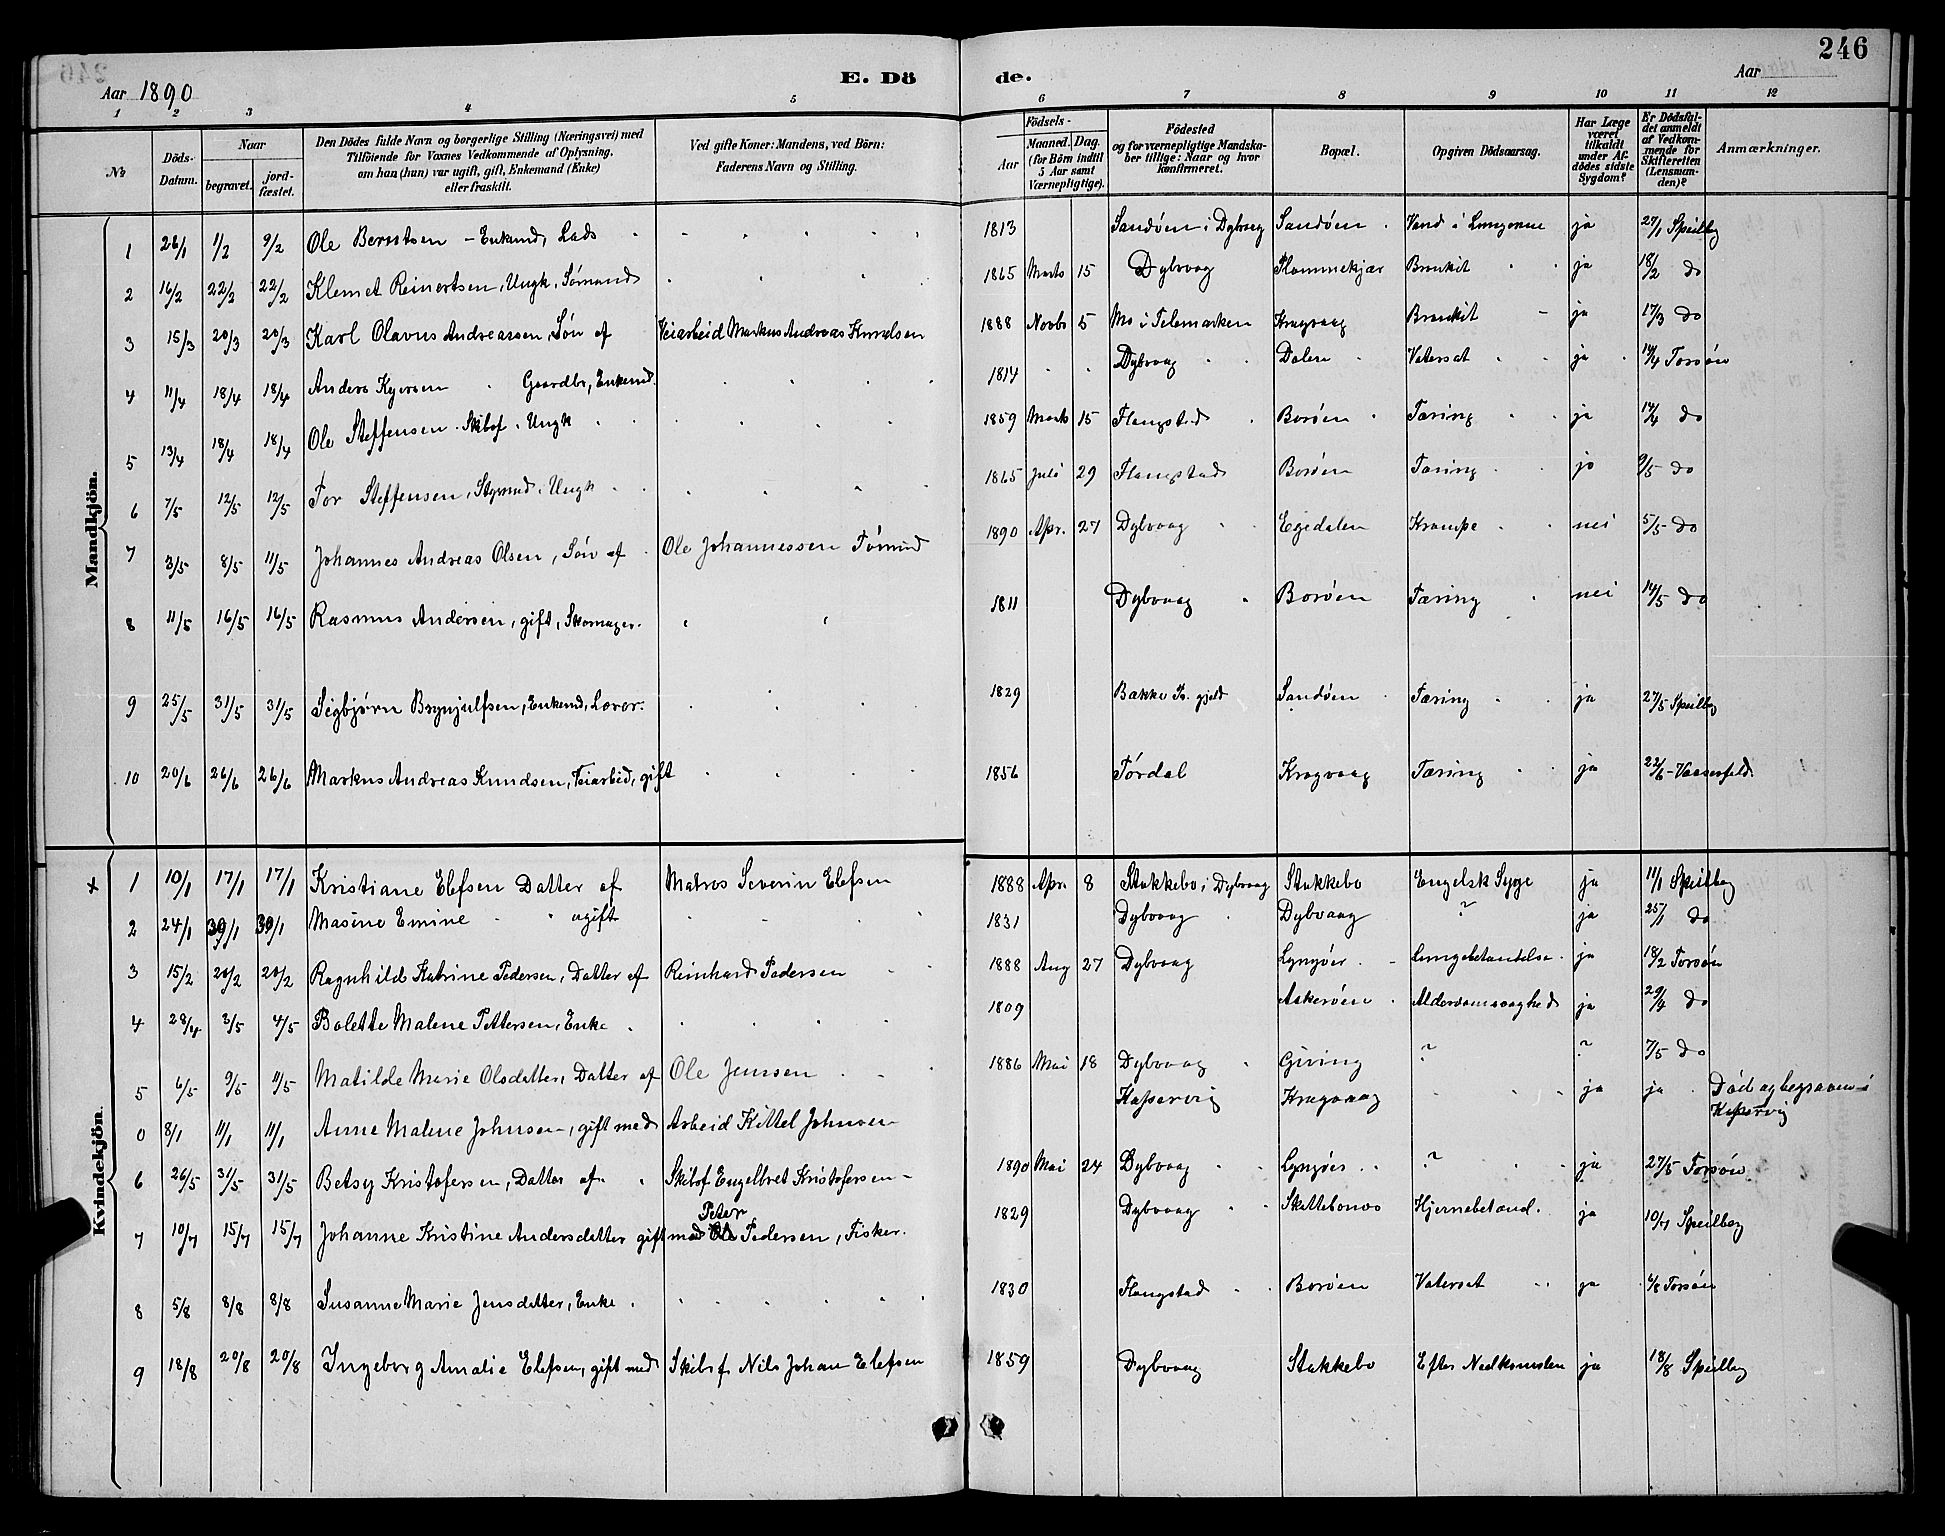 246
Aar 1890
E. Dö
de.
Aar
1 2 3 4 5 6 7 8 9 10 11 12
No
Döds-Datum.
Naar
begravet.
jordfæstet.
Den Dödes fulde Navn og borgerlige Stilling (Næringsvei) med
Tilföiende for Voxnes Vedkommende af Oplysning,
om han (hun) var ugift, gift, Enkemand (Enke)
eller fraskilt.
Ved gifte Koner: Mandens, ved Börn:
Faderens Navn og Stilling.
Födsels-
Aar
Maaned. Dag.
(for Börn indtil
5 Aar samt
Værnepligtige).
Födested
og for værnepligtige Mandska-
ber tillige: Naar og hvor
konfirmeret.
Bopæl.
Opgiven Dödsaarsag.
Har Læge
været
tilkaldt
under Af-
dödes sidste
Sygdom?
Er Dödsfal-
det anmeldt
af Vedkom-
mende for
Skifteretten
(Lensman-
den)?
Anmærkninger.
Mandkjön.
1 26/1 1/2 9/2 Ole Berntsen - Enkmd, Lods 1813 Sandøen i Dybvaag Sandøen Vand i Lungerne ja 27/1 Speilbg
2 16/2 22/2 22/2 Klemet Reinertsen, Ungk, Sømand 1865 Marts 15 Dybvaag Flammekjær Bronkit ja 18/2 do
3 15/3 20/3 20/3 Karl Olavus Andreassen, Søn af Veiarbeid Markus Andreas Knudsen 1888 Novbr 5 Mo i Telemarken Kragvaag Bronkit - ja 17/3 do
4 11/4 18/4 18/4 Anders Gaardbr, Enkemd. 1814 Dybvaag Dalen Vatersot ja 14/4 Torsøn
5 13/4 18/4 18/4 Ole Steffensen. Skibsf. Ungk 1859 Marts 15 Flangstad Borøen Tæring ja 14/4 do
6 7/5 12/5 12/5 Tor Steffensen, Styrmd. Ungk 1865 Juli 29 Flangstad Borøen Tæring ja 9/5 do
7 3/5 8/5 11/5 Johannes Andreas Olsen, Søn af Ole Johannessen Tømmd 1890 Apr. 27 Dybvaag Egedalen Krampe nei 5/5 do
8 11/5 16/5 16/5 Rasmus Andersen, gift, Skomager. 1811 Dybvaag Borøen Tæring nei 14/5 do
9 25/5 31/5 31/5 Sigbjørn Brynjulfsen, Enkemd, 1829 Bakke Pr. gjeld Sandøen Tæring ja 27/5 Speilbg
10 20/6 26/6 26/6 Markus Andreas Knudsen, Veiarbeid, gift 1856 Tørdal Kragvaag Tæring ja 22/6 - Vaasenfeld
Kvindekjön.
x 1 10/1 17/1 17/1 Kristiane Elefsen Datter af Matros Severin Elefsen 1888 Apr. 8 Stakkebo i Dybvaag Stakkebo Engelsk Syge ja 11/1 Speilberg
2 24/1 30/1 30/1 Masine Emine ugift 1831 Dybvaag Dybvaag ? ja 25/1 do
3 15/2 20/2 20/2 Ragnhild Katrine Pedersen, Datter af Reinhard Pedersen 1888 Aug 27 Dybvaag Lyngør - Lungebetændelse ja 18/2 Torsøn
4 28/4 3/5 4/5 Bolette Malene Pettersen, Enke 1809 Askerøen Alderdomssvaghed ja 29/4 do
5 6/5 9/5 11/5 Matilde Marie Olsdatter, Datter af Ole Jensen 1886 Mai 18 Dybvaag Giving ? ? 7/5 do
0 8/1 11/1 11/1 Anne Malene Johnsen, gift med Arbeid Kittel Johnsen Kaspervig Kragvaag ja ja Død og begraven i
Kaspervig
6 26/5 31/5 31/5 Betsy Kristofersen, Datter af Skibsf Engelbret Kristofersen - 1890 Mai 24 Dybvaag Lyngør ? ja 27/5 Torsøn
7 10/7 15/7 15/7 Johanne Kristine Andersdatter gift med Peter Pedersen, Fisker. 1829 Dybvaag Hjernebetænd. ja 10/7 Speilbeg
8 5/8 8/8 8/8 Susanne Marie Jensdatter, Enke 1830 Flangstad Borøen Vatersot ja 6/8 Torsøn
9 18/8 20/8 20/8 Ingeborg Amalie Elefsen, gift med Skibsf Nils Johan Elefsen 1859 Dybvaag Stakkebo Efter Nedkomsten ja 18/8 Speilbg